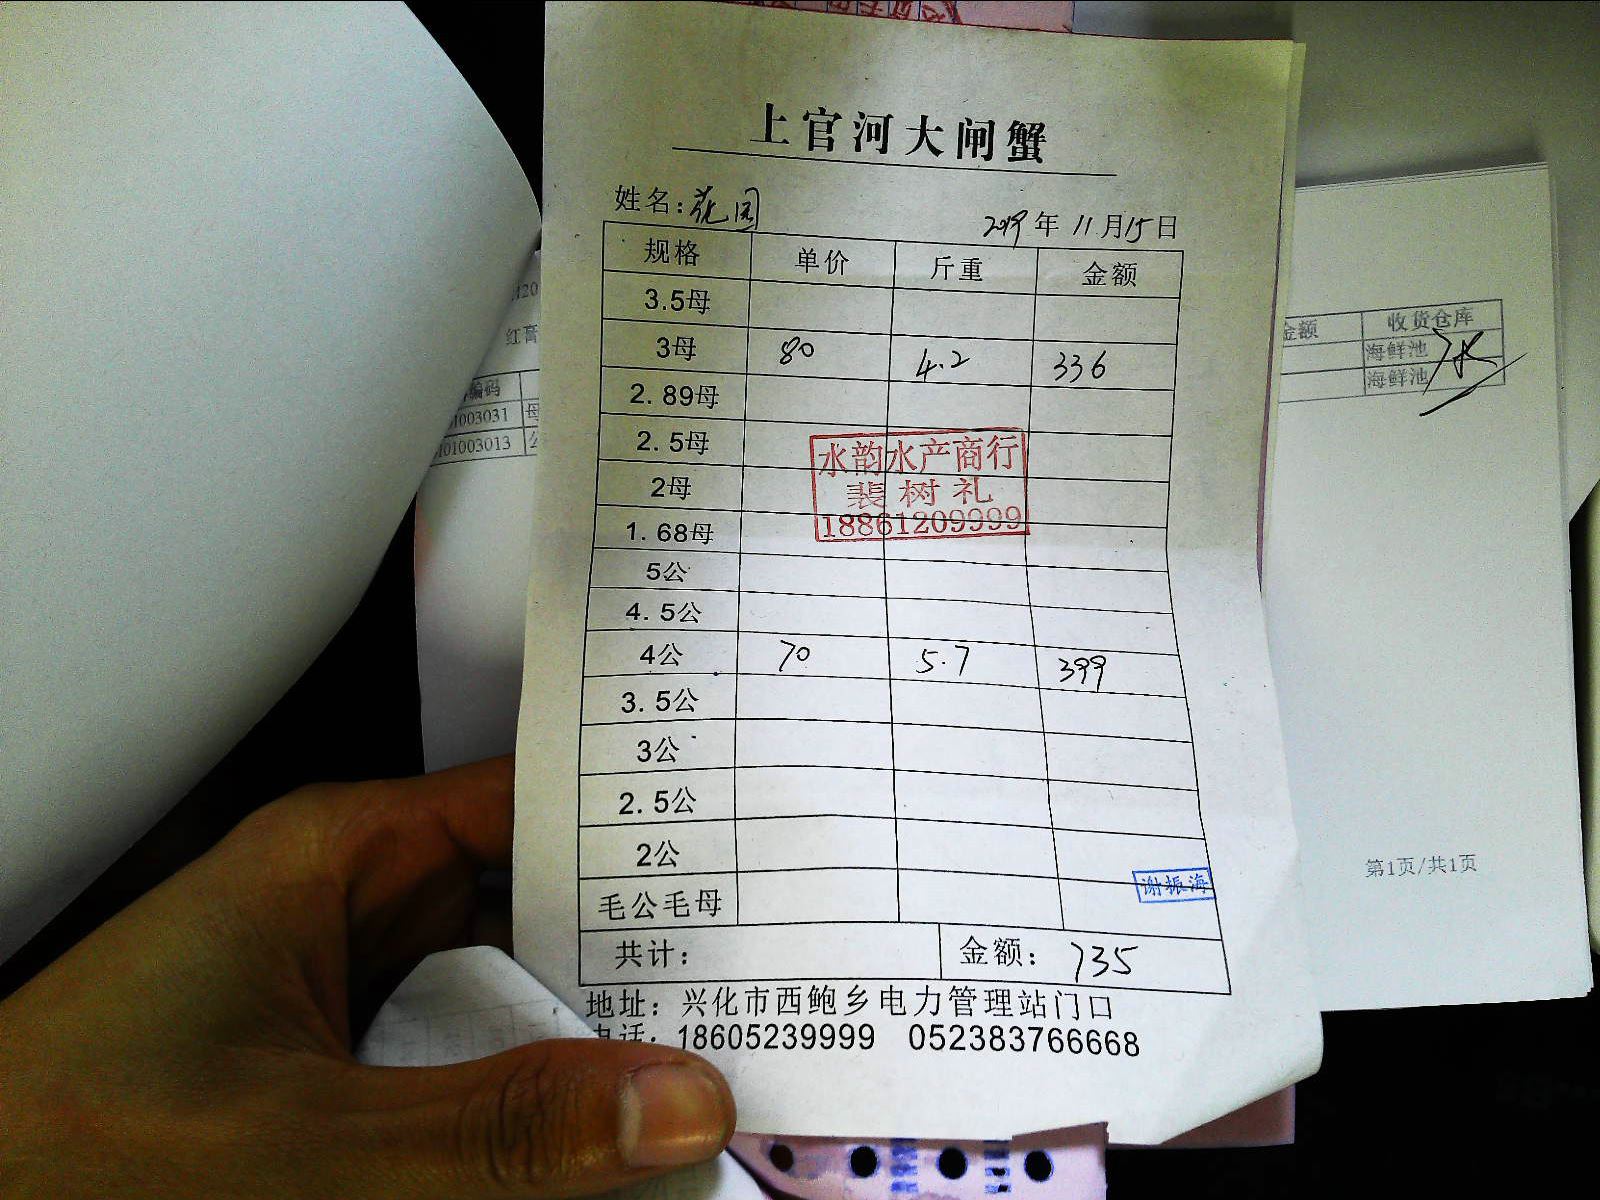 上官河大闸蟹
姓名：花园 2019年11月15日
规格 单价 斤重 金额
3.5母
3母 80 4.2 336
2.89母
2.5母
2母
1.68母
水韵水产商行
裴树礼
18861209999
5公
4.5公
4公 70 5.7 399
3.5公
3公
2.5公
2公
毛公毛母
谢振海
共计： 金额：735
地址：兴化市西鲍乡电力管理站门口
电话：18605239999 052383766668
红膏
编码
01003031 母
101003013 公
金额 收货仓库
海鲜池
海鲜池
第1页/共1页